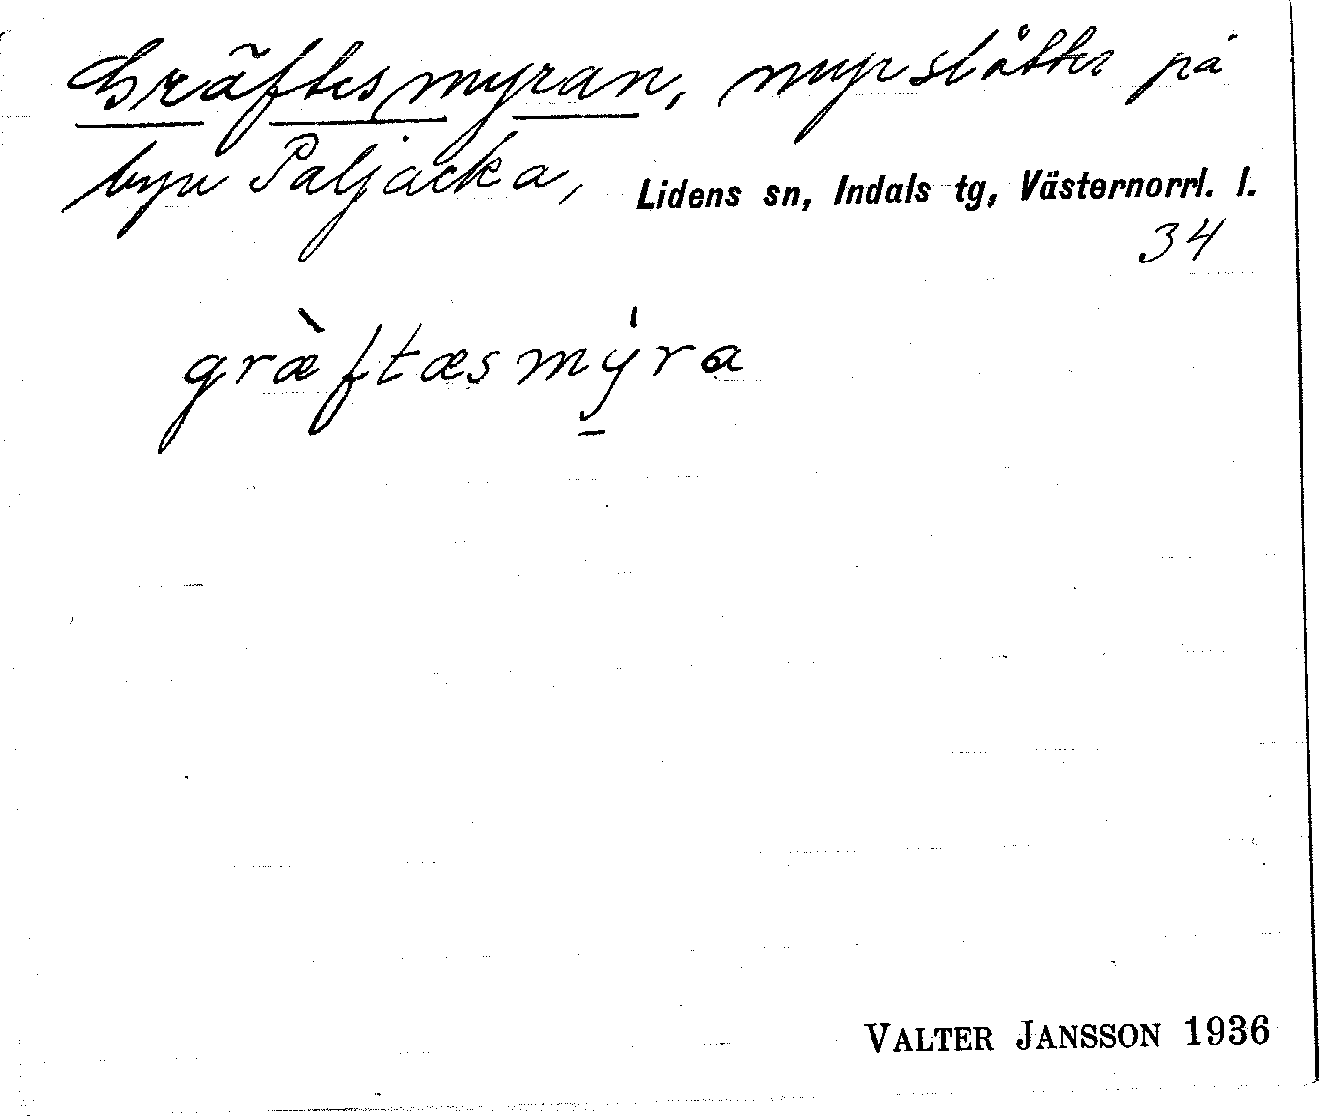 Gräftesmyran, myrslåtter på
byn Paljacka, Lidens sn, Indals tg, Västernorrl. l.
34
græ̀ftæsmý̱ra
VALTER JANSSON 1936